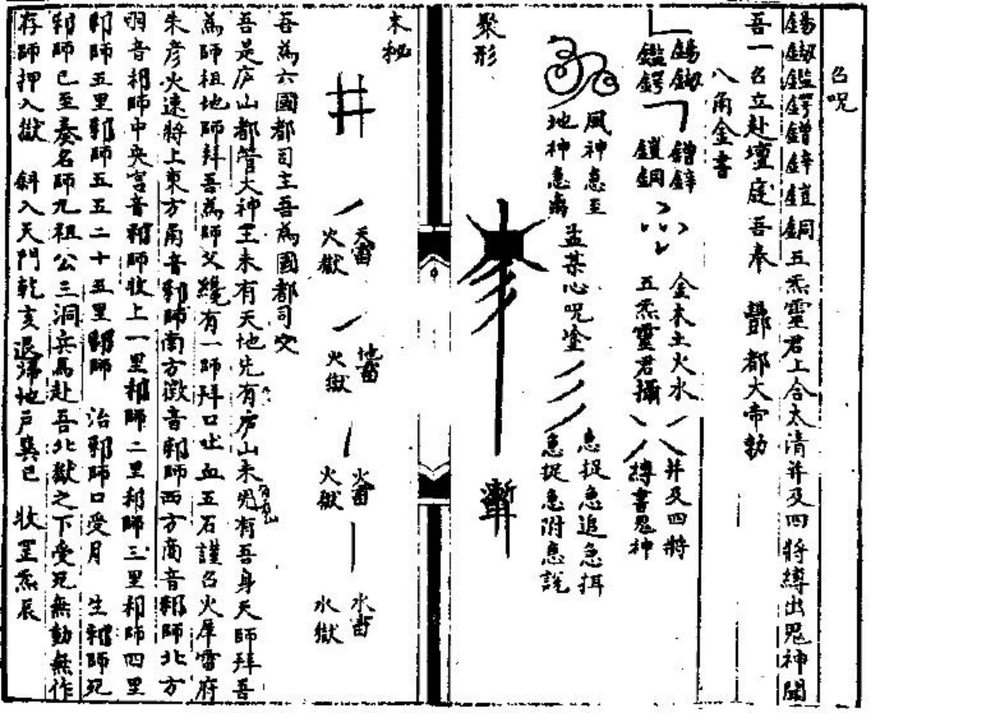 召咒
五炁靈君上合太清并及四將縳出鬼神聞
吾一名立赴壇庭吾奉 酆都大帝勅
八角金書
金木土火水
五炁靈君攝
并及四將
縳害鬼神
風神急至
地神急摛
孟某心咒塗
急捉急追急拑
急捉急附急說
聚形
天雷
火獄
地雷
火獄
火雷
火獄
水雷
水獄
末秘
吾為六國都司主吾為國都司文
吾是庐山都管大神王未有天地先有庐山未有吾身天師拜吾
為師祖地師拜吾為師父纔有一師拜口吐血五石謹召火犀雷府
朱彦火速將上東方角音邪師南方徵音邪師西方商音邪師北方
羽音邪師中央宮音邪師收上一里邪師二里邪師三里邪師四里
邪師五里邪師五五二十五里邪師 治邪師口受月 生邪師死
邪師已至奏名師九祖公三洞兵馬赴吾北獄之下受死無動無作
存師押入獄 斜入天門乾亥退歸地户巽巳 收罡炁辰